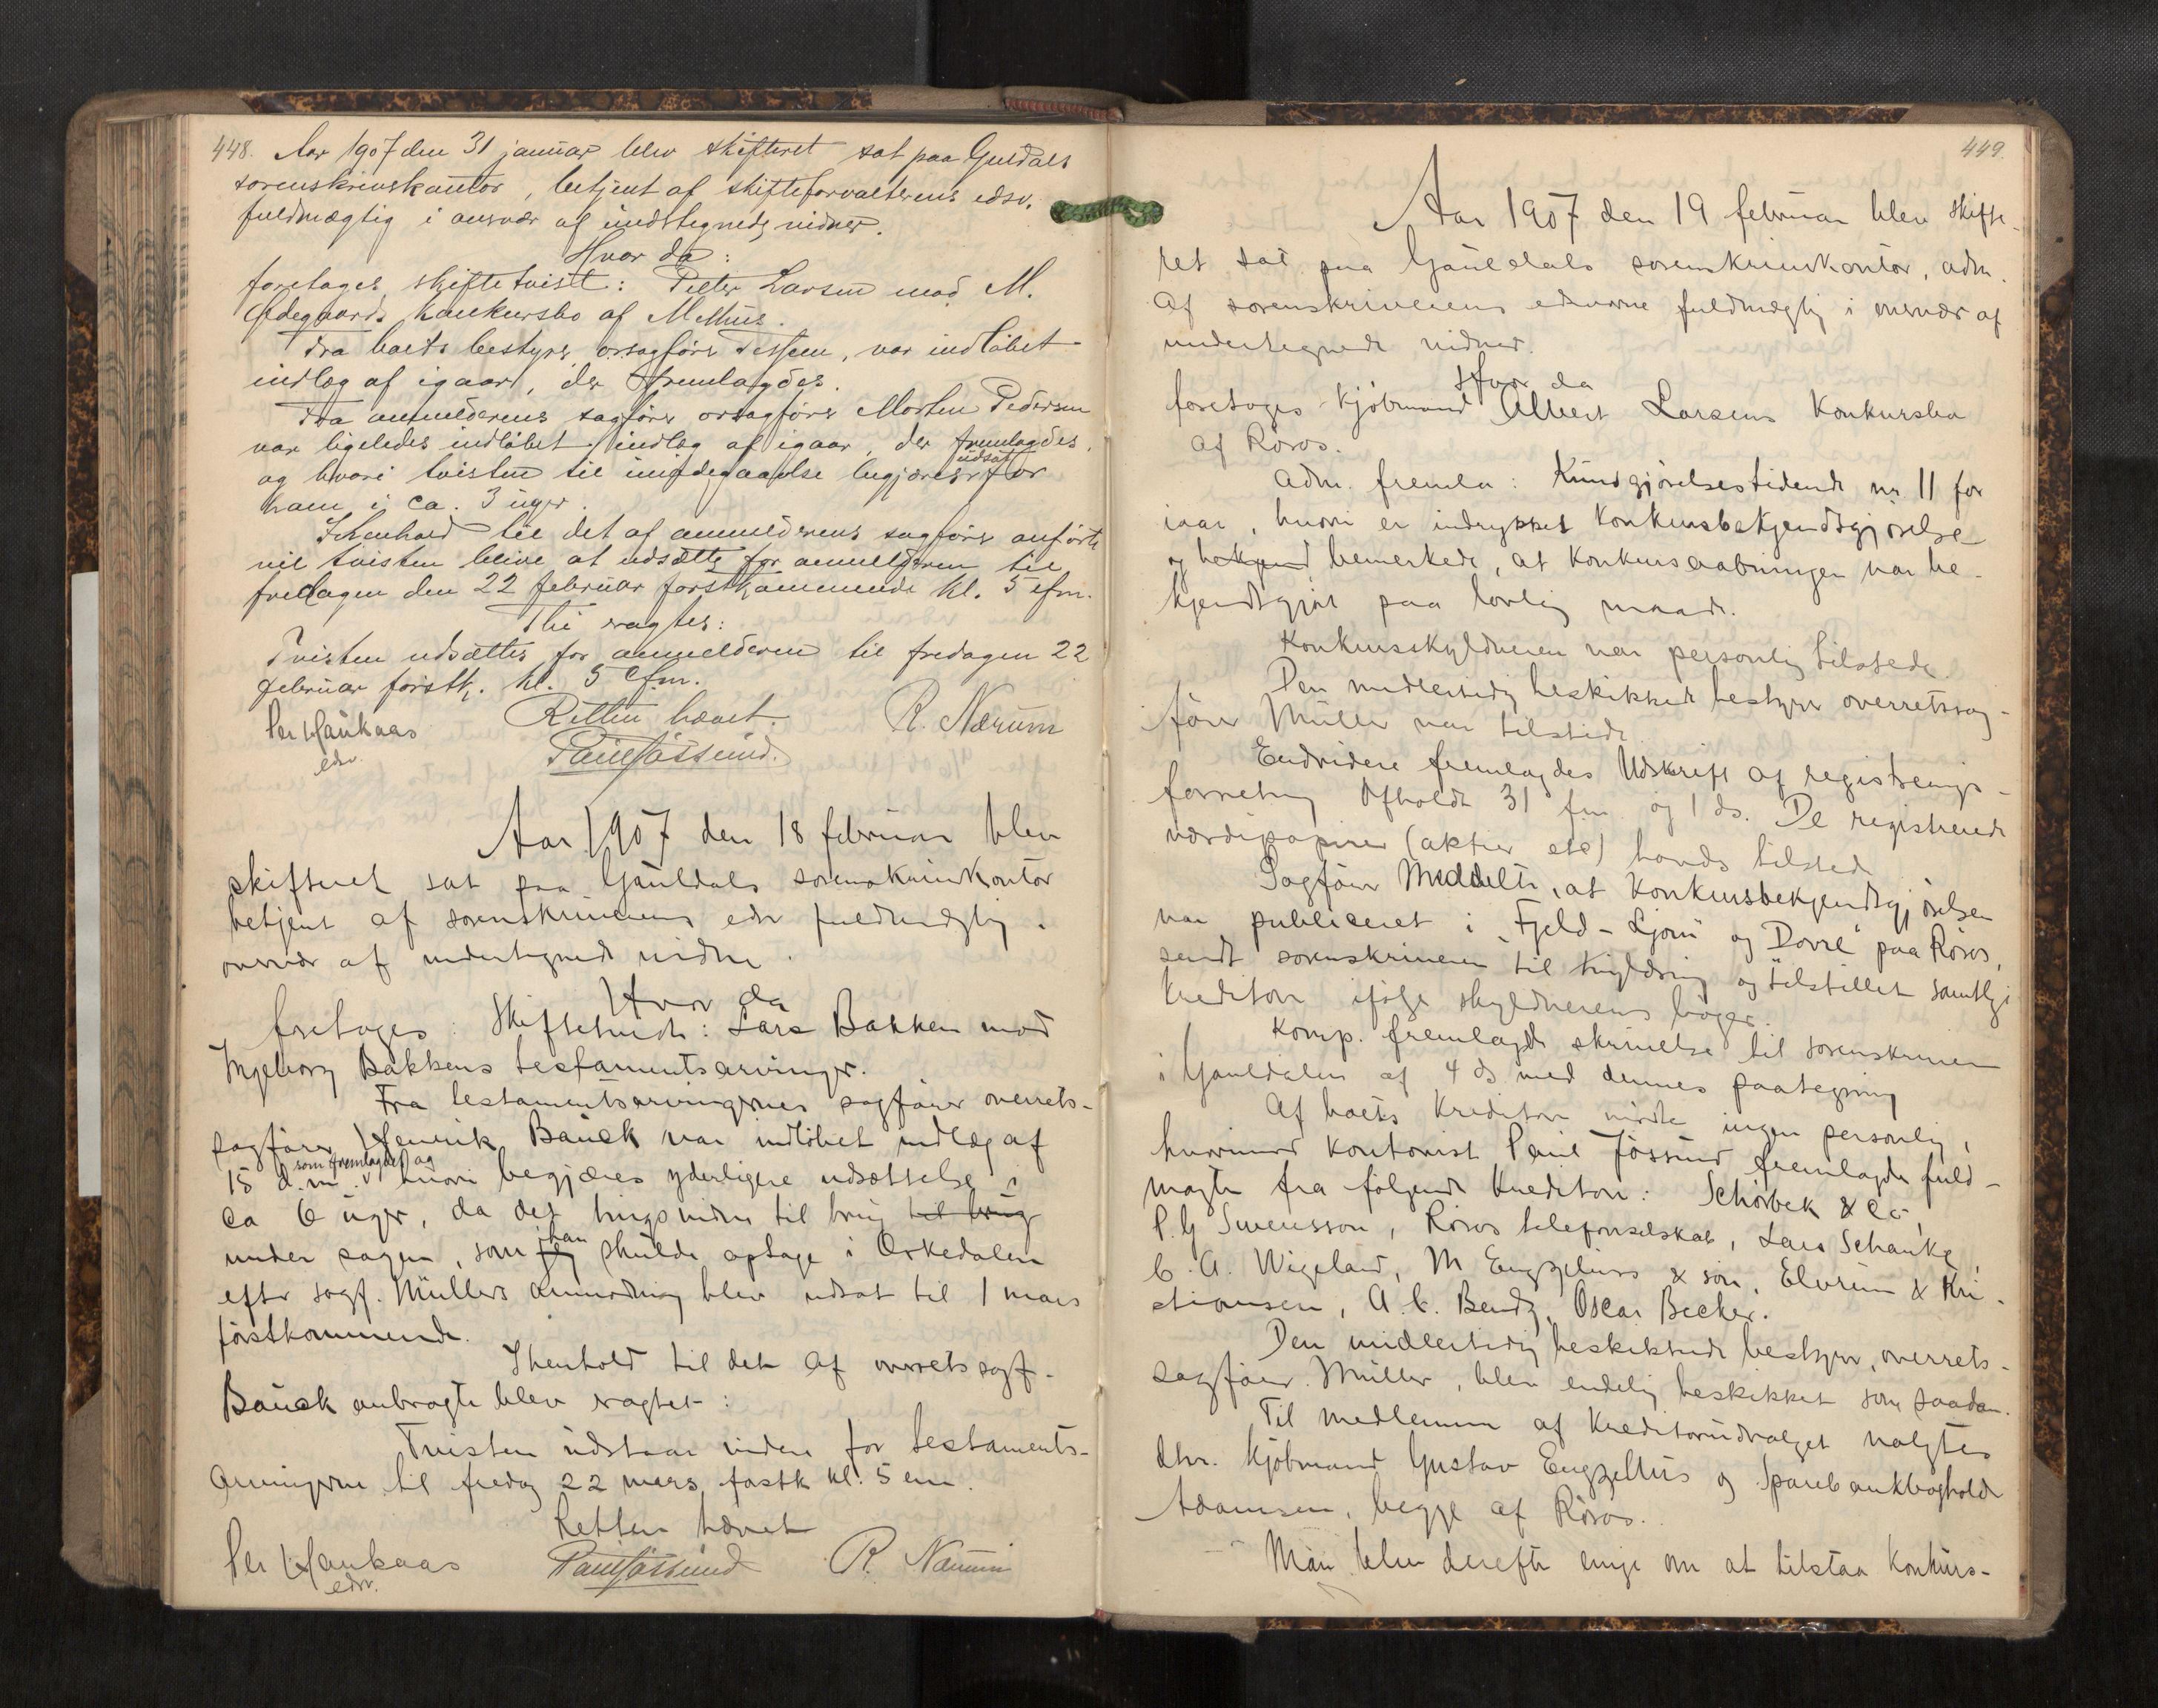 448. Aar 1907 den 31 januar blev skifteret sat paa Guldals
sorenskriverkontor, betjent af skifteforvalterens edsv.
fuldmægtig i overvær af undertegnede vidner.
Hvor da:
foretages skiftetvist: Peter Larsen mod M.
Ødegaards konkursbo af Melhus.
Fra boets bestyrer orsagfører Tessem, var indløbet
indlæg af igaar, der fremlagdes.
Fra anmelderens sagfører orsagfører Morten Pedersen
var ligeledes indløbet indlæg af igaar, der fremlagdes,
og hvori tvisten til imødegaaelse begjæres udsat for
ham i ca. 3 uger.
I henhold til det af anmelderens sagfører anførte
vil tvisten blive at udsætte for anmelderen til
fredagen den 22 februar førstkommende kl. 5 efm.
Thi vagtes:
Tvisten udsættes for anmelderen til fredagen 22
februar førstk. kl. 5 efm.
Retten hævet.
Per Haukaas
edsv.
Paul Jøssund.
R. Nærum
Aar 1907 den 18 februar blev
skifteret sat paa Gauldals sorenskriverkontor
betjent af sorenskriverens edsv fuldmægtig i
overvær af undertegnede vidne.
Hvor da
foretages: Skiftetvist: Lars Bakken mod
Ingeborg Bakkens testamentsarvinger.
Fra testamentsarvingernes sagfører overrets-
sagfører Henrik Bauck var indløbet indlæg af
15 d.m. som fremlagdes og hvori begjæres yderligere udsættelse i
ca 6 uger, da det tingsvidne til brug til brug
under sagen, som jeg han skulde optage i Orkedalen
efter sagf. Müllers anmodning blev udsat til 1 mars
førstkommende.
I henhold til det af overretssagf.
Bauck anbragte blev vagtet:
Tvisten udstaar videre for testaments-
arvingerne til fredag 22 mars, førstk kl. 5 em.
Retten hævet
Per Haukaas
edsv.
Paul Jøssund
R. Nærum
449.
Aar 1907 den 19 februar blev skifte-
ret sat paa Gauldals sorenskriverkontor, adm.
af sorenskriverens edsvorne fuldmægtig i overvær af
undertegnede vidner.
Hvor da
foretages kjøbmand Albert Larsens konkursbo
af Røros.
Adm. fremla: Kundgjørelsestidende nr. 11 for
iaar, hvori er indrykket konkursbekjendtgjørelse
og bekjend bemerkede, at konkursaabningen var be-
kjendtgjort paa lovlig maade.
Konkursskyldneren var personlig tilstede.
Den midlertidig beskikkede bestyrer overretssag-
fører Müller var tilstede.
Endvidere fremlagdes Udskrift af registrerings-
forretning afholdt 31 f.m. og 1 ds. De registrerede
værdipapirer (aktier etc) havdes tilstede
Sagfører Meddelte, at konkursbekjendtgjørelsen
var publiceret i „Fjeld-Ljom" og „Dovre" paa Røros,
sendt sorenskriveren til tinglysning og tilstillet samtlige
kreditorer ifølge skyldnerens bøger.
Komp. fremlagde skrivelse til sorenskriveren
i Gauldalen af 4 ds med dennes paategning
Af boets kreditorer mødte ingen personlig,
hvorimod kontorist Paul Jøssund fremlagde fuld-
magter fra følgende kreditorer: Schørbek & Co,
P. G Svensson, Røros telefonselskab, Lars Schanke,
C. A. Wigeland, M Engzelius & søn, Elvrum & Kri-
stiansen, A. C. Bendz, Oscar Becker.
Den midlertidig beskikkede bestyrer, overrets-
sagfører Müller, blev endelig beskikket som saadan.
Til medlemmer af kreditorudvalget valgtes
dhr. kjøbmand Gustav Engzelius og sparebankbogholder
Adamsen, begge af Røros.
Man blev derefter enige om at tilstaa konkurs-